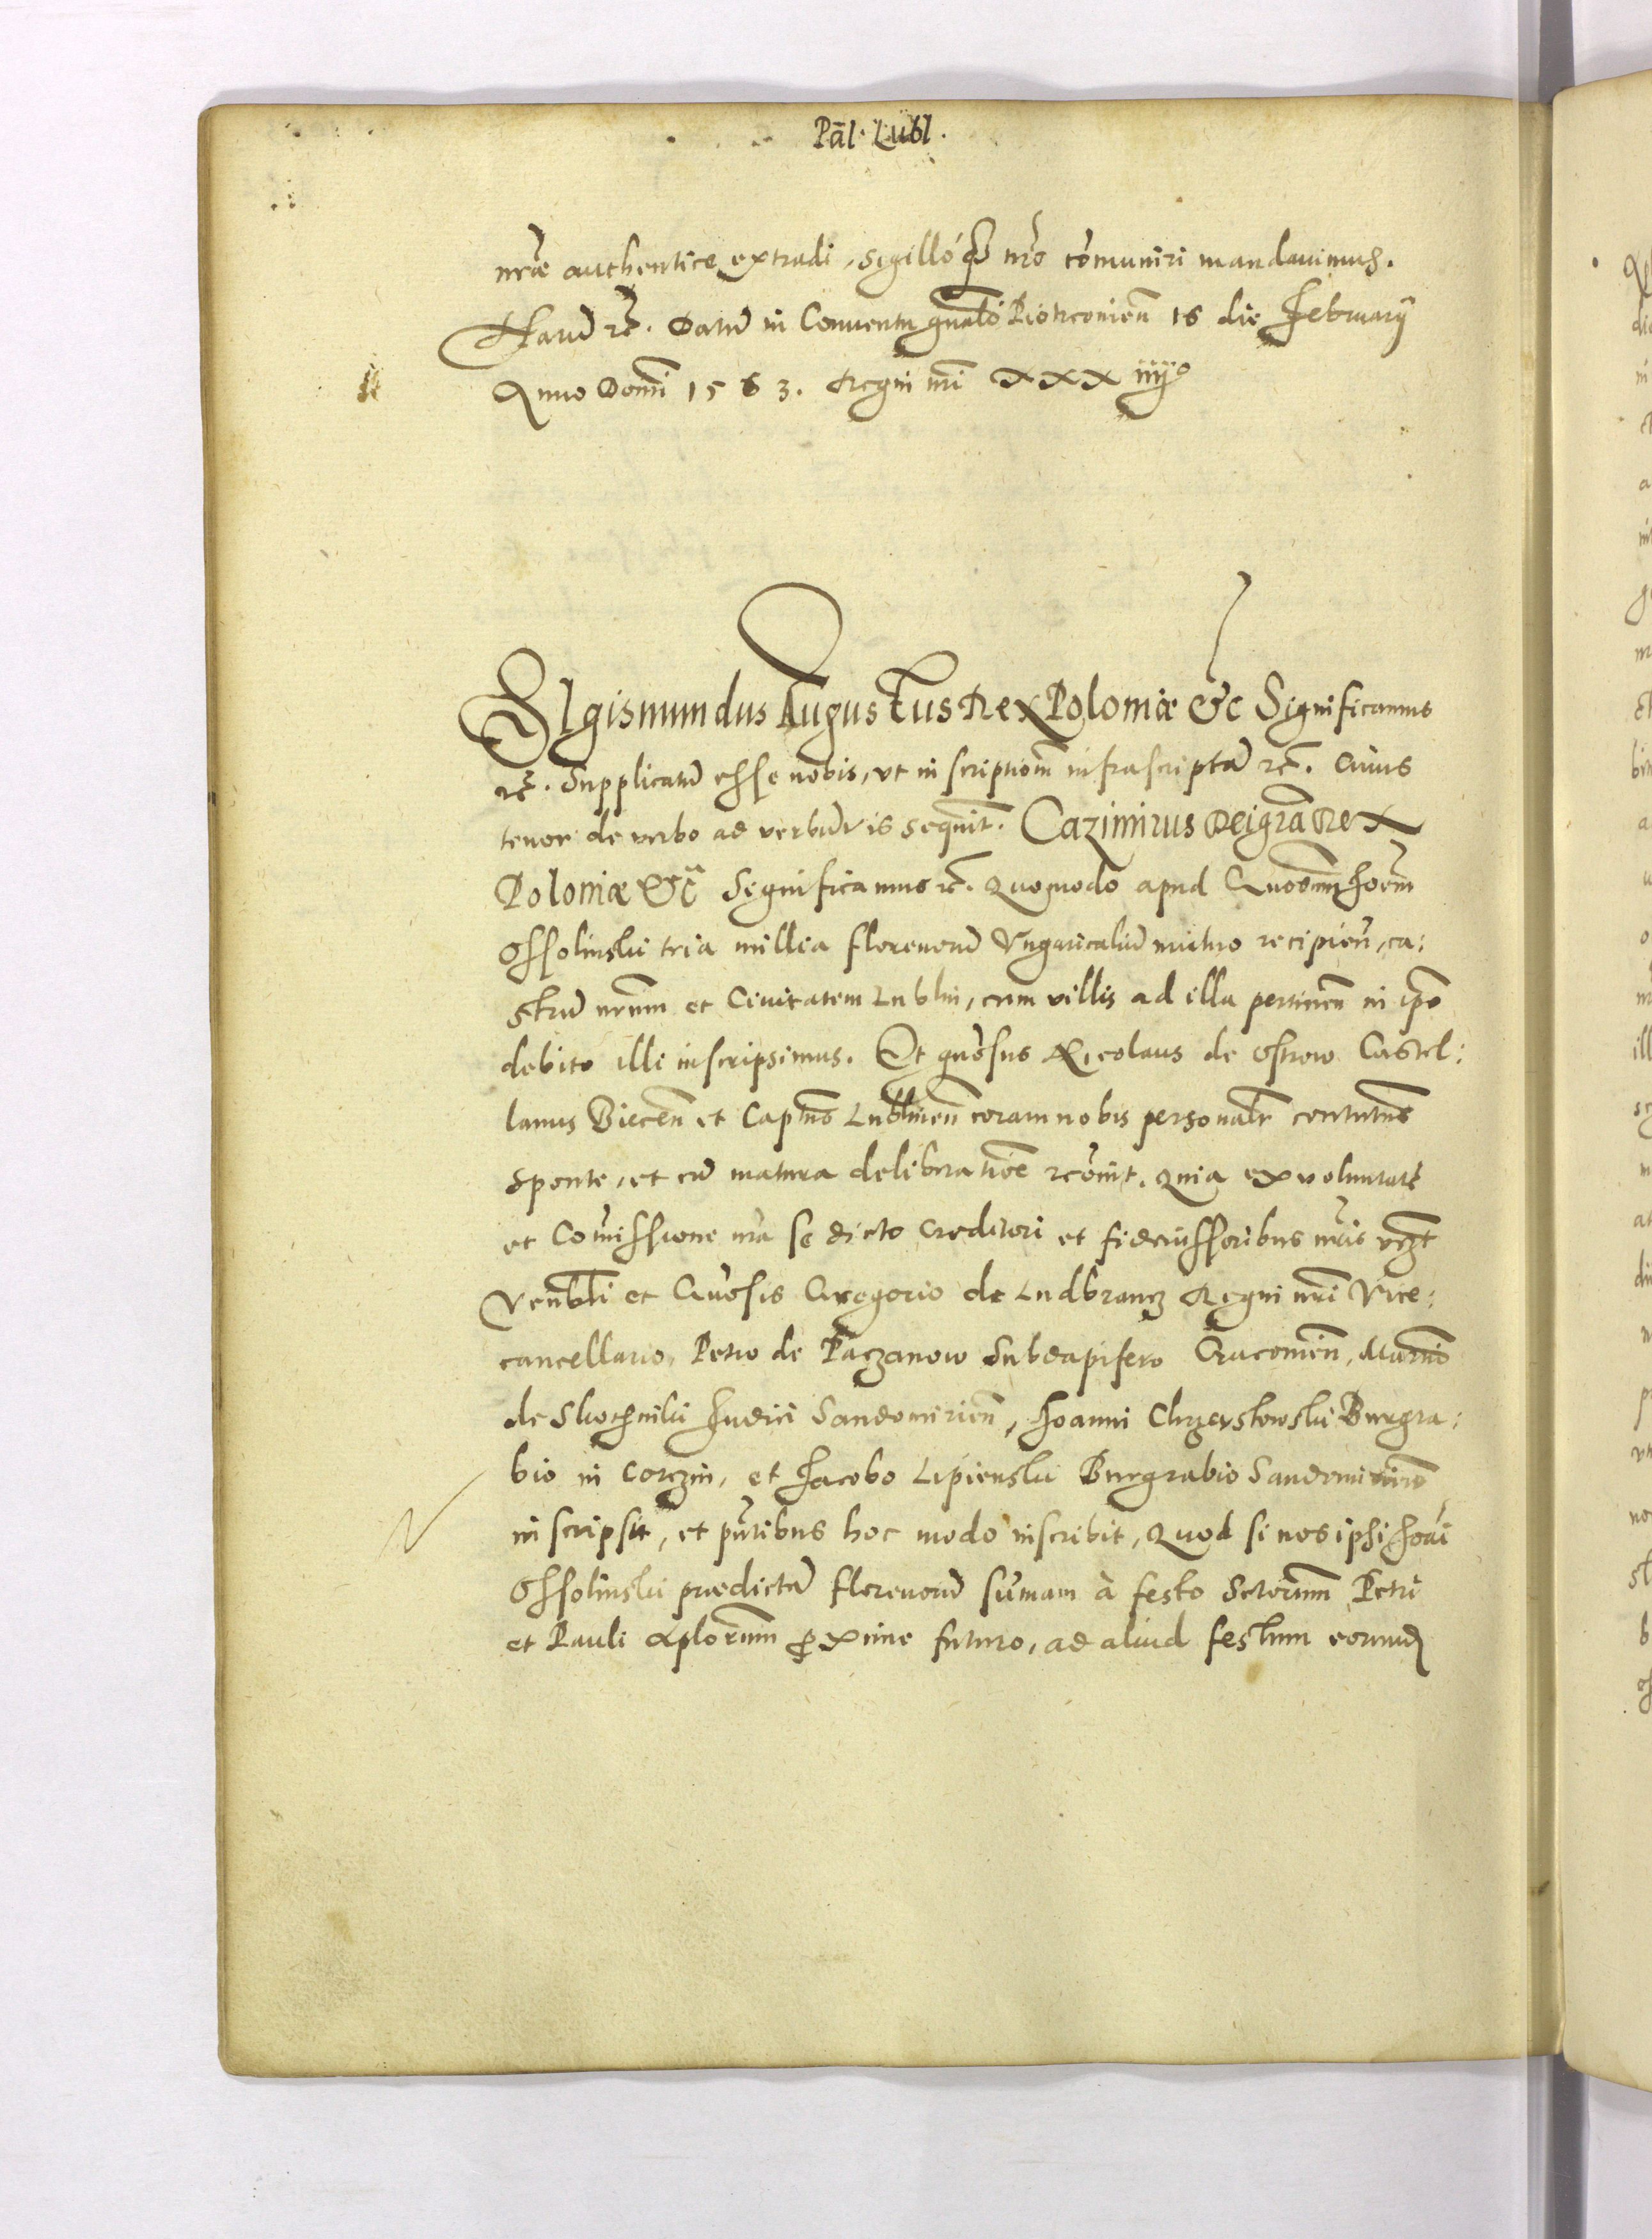 Pāl. Lubl.
nrāe authentice extradi, sigilloq nrō cōmuniri mandauimus.
Harū rē. Datū in Conuentu gnāli Piotrconieñ 16 die Februarÿ
Anno Domī 1563. Regni nrī XXX iiijº
SIgismundus Augustus Rex Poloniæ &c Significamus
rē. Supplicatū esse nobis, vt inscriptionē infrascriptā rē. Cuius
tenor de verbo ad verbū is sequit̄. Cazimirus Dei grā Rex
Poloniæ &c̃ Significamus rē. Quomodo apud Gnosūm Ioēm
Ossolinski tria millia florenorū Vngaricaliū mutuo recipieñ, ca:
strū nrūm et Ciuitatem Lublin, cum villis ad illa pertineñ in ipō
debito illi inscripsimus. Et gnōsus Nicolaus de Ostrow Castel:
lanus Bieceñ et Captñs Lublineñ coram nobis personalr̄ contutñs
sponte, et cū matura deliberatiōe rēcōuit. Quia ex voluntate
et Comissione nrā se dicto Creditori et fideiussoribus nrīs vȝt
Venbli et Gnōsis Gregorio de Ludbrancz Regni nrī Vice:
cancellario, Petro de Paczanow Subdapifero Cracouieñ, Martino
de Skothniki Iudici Sandomirieñ, Ioanni Chrzastowski Burgra:
bio in Corczin, et Iacobo Lipienski Burgrabio Sandomirieñ
inscripsit, et pn̄tibus hoc modo inscribit, Quod si nos ipsi Ioāi
Ossolinski prædictā florenorū sūmam à festo Sctorūm Petri
et Pauli Aplorūm proxime futuro, ad aliud festum eorundē